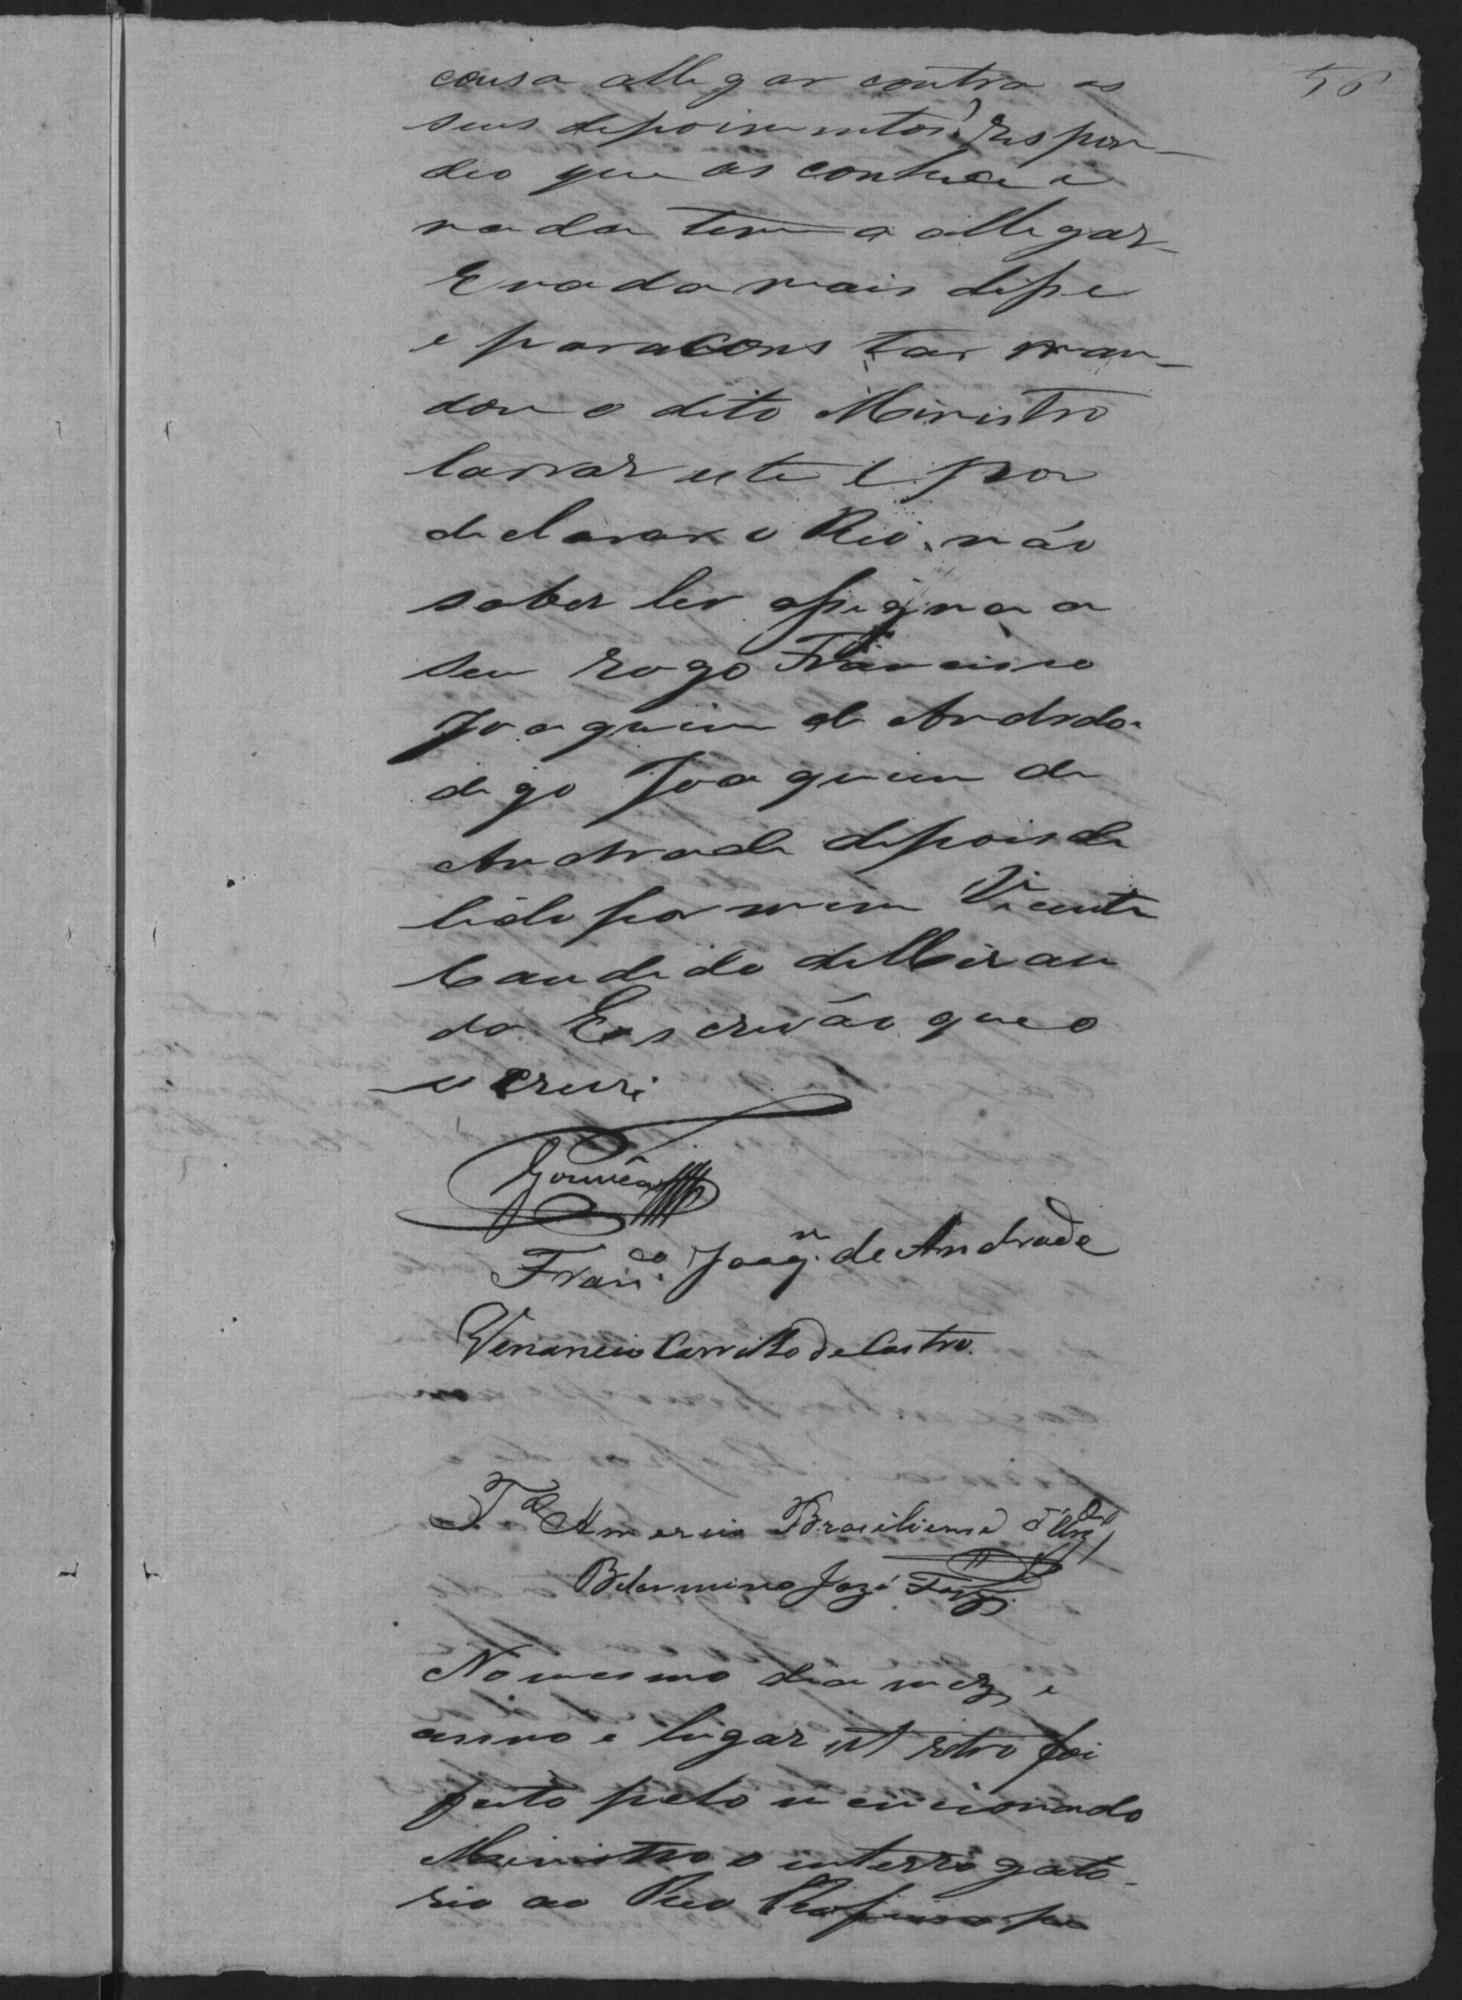 56
cousa allegar contra os
seus depoimentos? Respon-
deo que as conhece e
nada tem a allegar
E nada mais disse
e para constar man-
dou o dito Ministro
lavrar este e por
declarar o Reo não
saber ler assigna a
seu rogo Francisco
Joaquim de Andrada
digo Joaquim de
Andrade depois de
lido por mim Vicente
Candido de Miran
da Escrivão que o
escrevi
Gouvêa
Franco. Joaqm. de Andrade
Venancio Carrilho de Castro.
Ta Americo Brasiliense
Belarmino José
No mesmo dia mez e
anno e lugar ut retro foi
feito pelo mencionado
Ministro o interrogato-
rio ao Reo